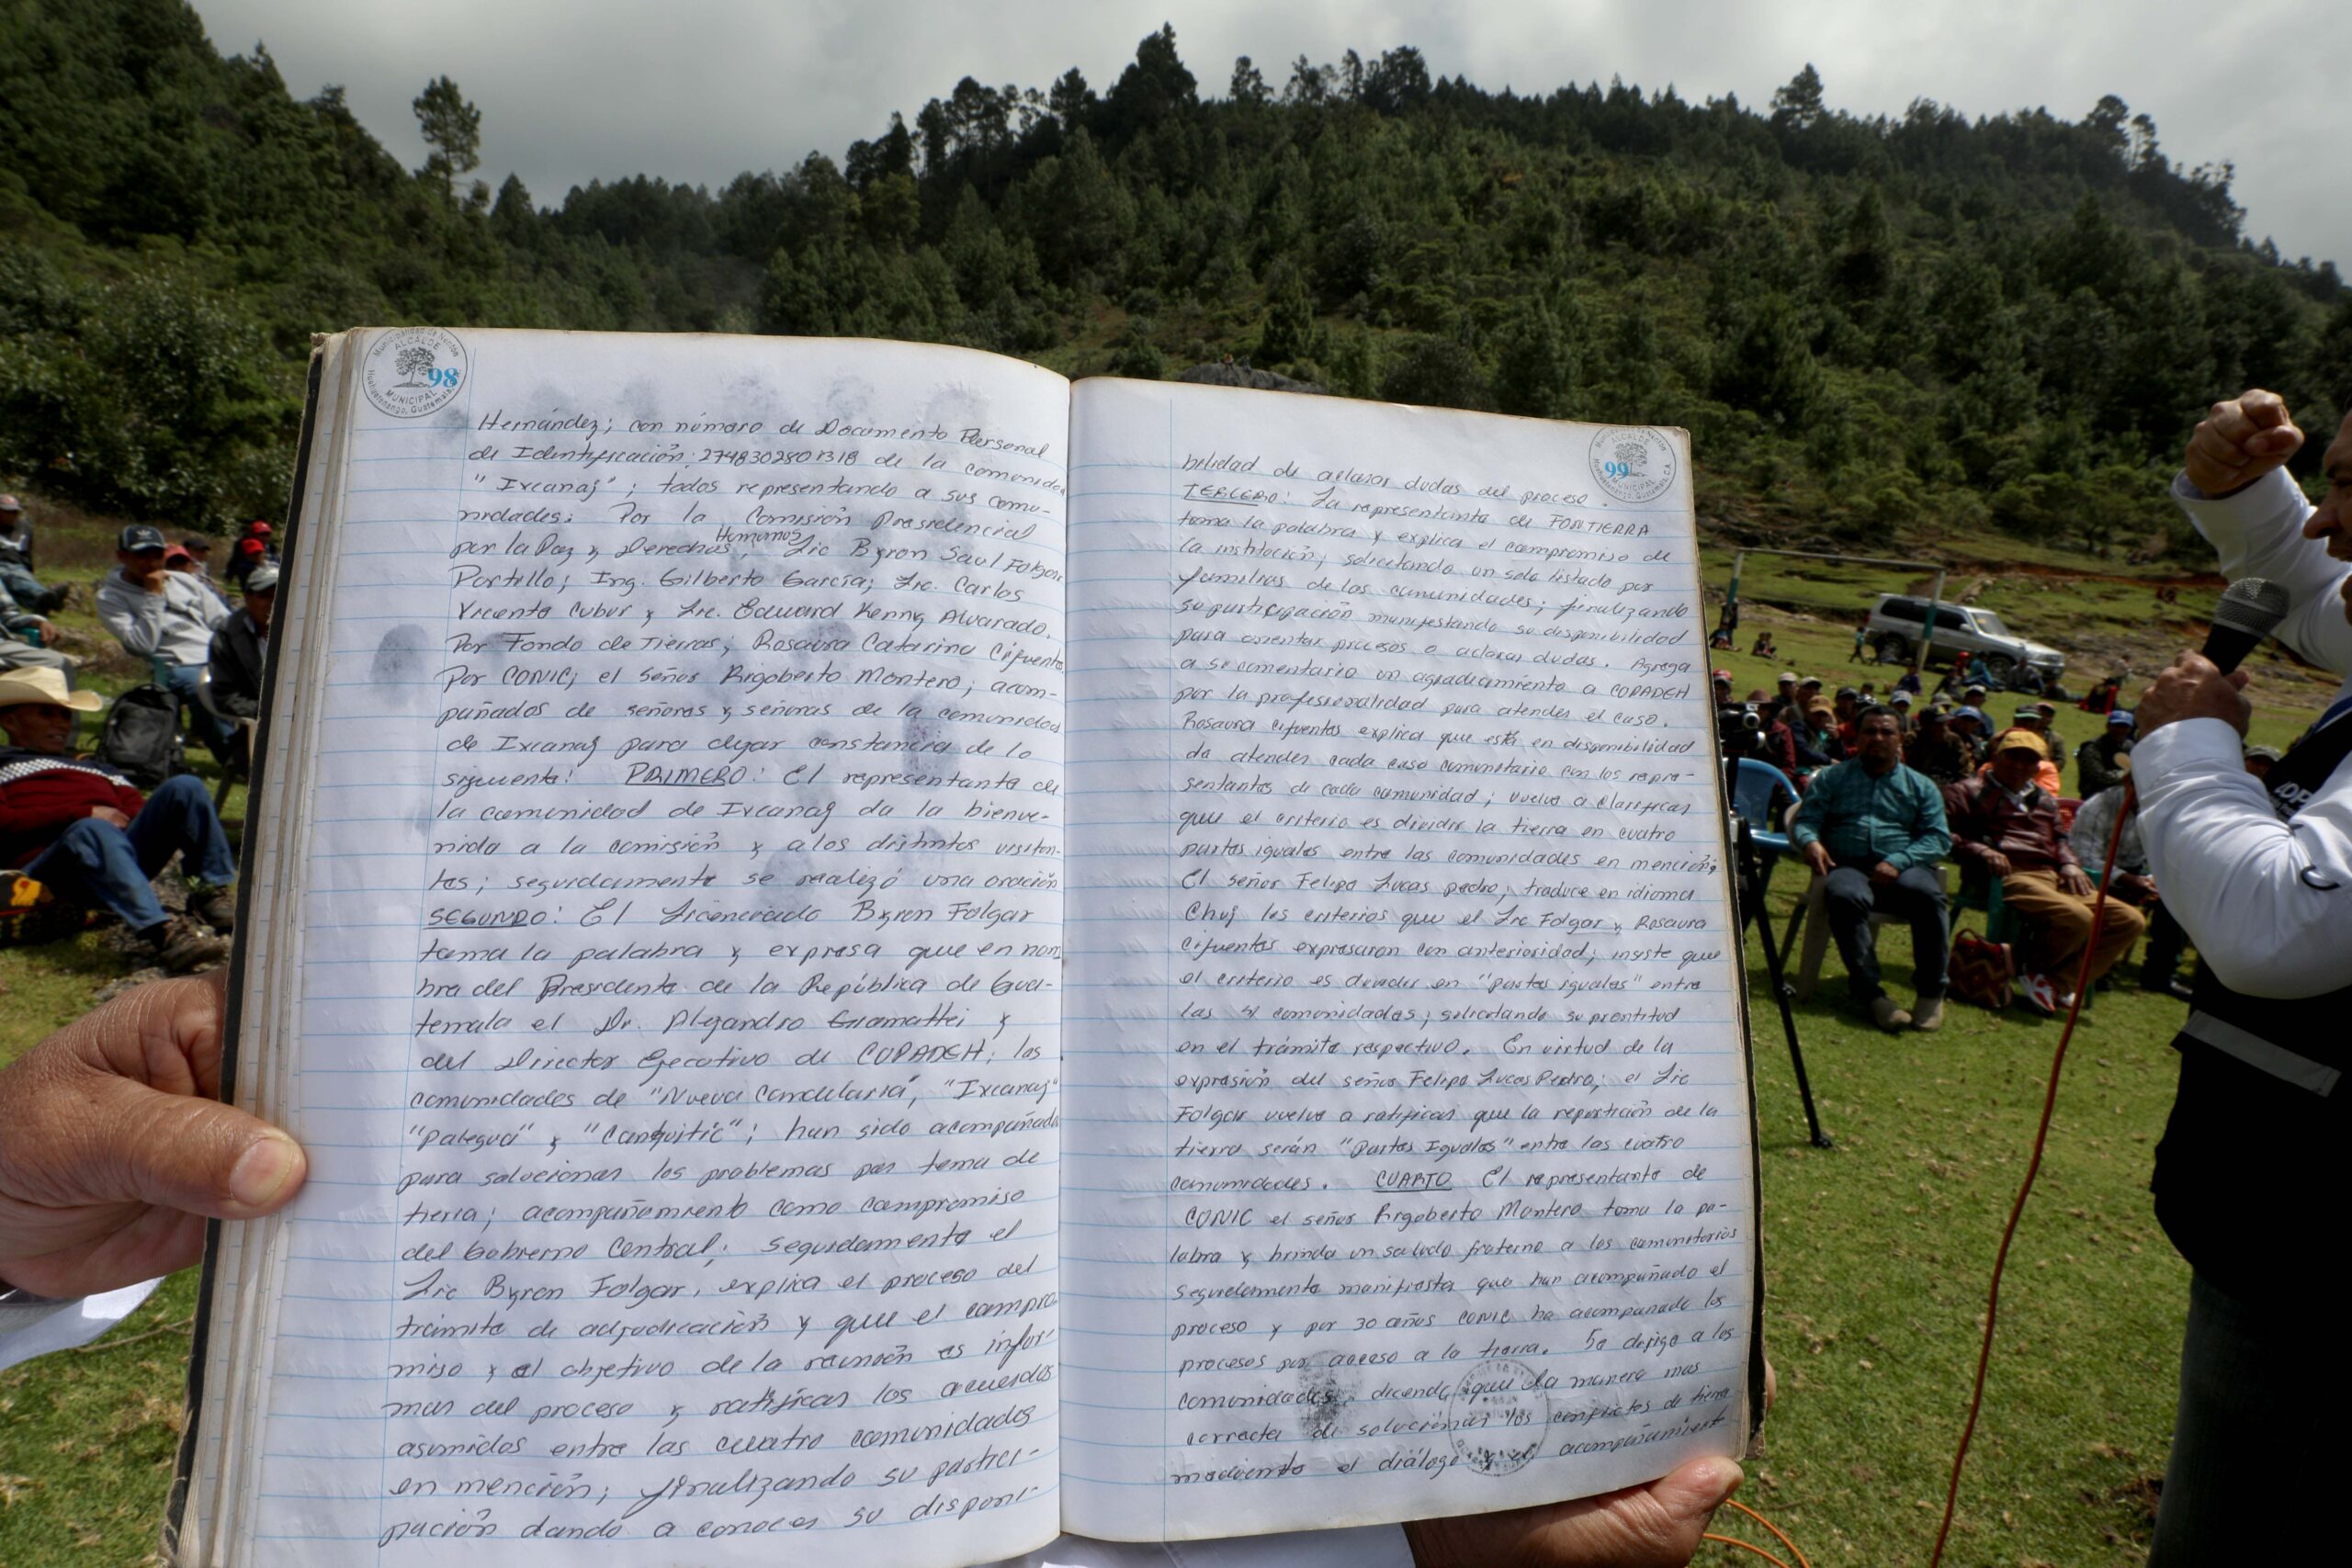 Municipalidad de Nentón
ALCALDE
98
MUNICIPAL
Huehuetenango, Guatemala, C.A.
Hernández; con número de Documento Personal
de Identificación: 2748302801318 de la comunidad
"Ixcanaj"; todos representando a sus comu-
nidades: Por la Comisión Presidencial
por la Paz y Derechos Humanos, Lic Byron Saul Folgar
Portillo; Ing. Gilberto García; Lic. Carlos
Vicente Cubur y Lic. Edward Kenny Alvarado.
Por Fondo de Tierras; Rosaura Catarina Cifuentes
Por CONIC; el señor Rigoberto Montero; acom-
pañados de señoras y señores de la comunidad
de Ixcanaj para dejar constancia de lo
siguiente: PRIMERO: El representante de
la comunidad de Ixcanaj da la bienve-
nida a la comisión y a los distintos visitan-
tes; seguidamente se realizó una oración
SEGUNDO: El Licenciado Byron Folgar
toma la palabra y expresa que en nom
bre del Presidente de la República de Gua-
temala el Dr. Alejandro Giamattei y
del Director Ejecutivo de COPADEH; las
comunidades de "Nueva Candelaria", "Ixcanaj"
"Palegua" y "Canquitic"; han sido acompañada
para solucionar los problemas por tema de
tierra; acompañamiento como compromiso
del Gobierno Central; seguidamente el
Lic Byron Folgar, explica el proceso del
trámite de adjudicación y que el compro-
miso y el objetivo de la reunión es infor-
mar del proceso y ratificar los acuerdos
asumidos entre las cuatro comunidades
en mención; finalizando su partici-
pación dando a conocer su disponi-
ALCALDE
99
MUNICIPAL
Huehuetenango, Guatemala, C.A.
bilidad de aclarar dudas del proceso.
TERCERO: La representante de FONTIERRA
toma la palabra y explica el compromiso de
la institución; solicitando un solo listado por
familias de las comunidades; finalizando
su participación manifestando su disponibilidad
para orientar procesos o aclarar dudas. Agrega
a su comentario un agradecimiento a COPADEH
por la profesionalidad para atender el caso.
Rosaura Cifuentes explica que está en disponibilidad
de atender cada caso comunitario con los repre-
sentantes de cada comunidad; vuelve a clarificar
que el criterio es dividir la tierra en cuatro
partes iguales entre las comunidades en mención;
El señor Felipe Lucas pedro; traduce en idioma
Chuj los criterios que el Lic Folgar y Rosaura
Cifuentes expresaron con anterioridad; insiste que
el criterio es dividir en "partes iguales" entre
las 4 comunidades; solicitando su prontitud
en el trámite respectivo. En virtud de la
expresión del señor Felipe Lucas Pedro; el Lic
Folgar vuelve a ratificar que la repartición de la
tierra serán "Partes Iguales" entre las cuatro
comunidades. CUARTO El representante de
CONIC el señor Rigoberto Montero toma la pa-
labra y brinda un saludo fraterno a los comunitarios
seguidamente manifiesta que han acompañado el
proceso y por 30 años CONIC ha acompañado los
procesos por acceso a la tierra. Se dirige a los
comunidades, diciendo que la manera mas
correcta de solucionar los conflictos de tierra
mediante el diálogo y el acompañamiento